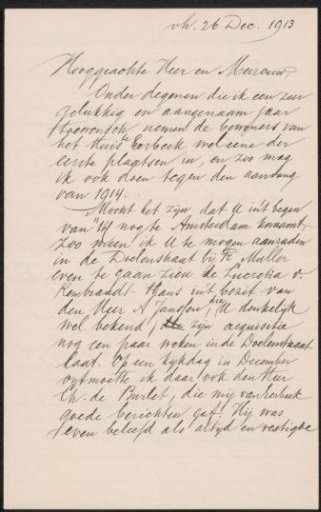 vh. 26 Dec. 1913
Hooggeachte Heer en Mevrouw,
Onder degenen die ik een zeer
gelukkig en aangenaam jaar
toewensch, nemen de bewoners van
het Huis te Eerbeek wel eene der
eerste plaatsen in, en zoo mag
ik ook doen tegen den aanvang
van 1914.
Mocht het zijn dat U in 't begin
van '14 nog te Amsterdam komt
zoo meen ik U te mogen aanraden
in de Doelenstraat bij Fr. Muller
even te gaan zien de Lucretia v.
Rembrandt thans in 't bezit van
den Heer A Janssen, die U denkelijk
wel bekend, zijn acquisitie
nog een paar weken in de Doelenstraat
laat. Op een kijkdag in December
ontmoette ik daar ook den Heer
Ch. de Burlet, die mij van
goede berichten gaf. Hij was
even beleefd als altijd en vestigde